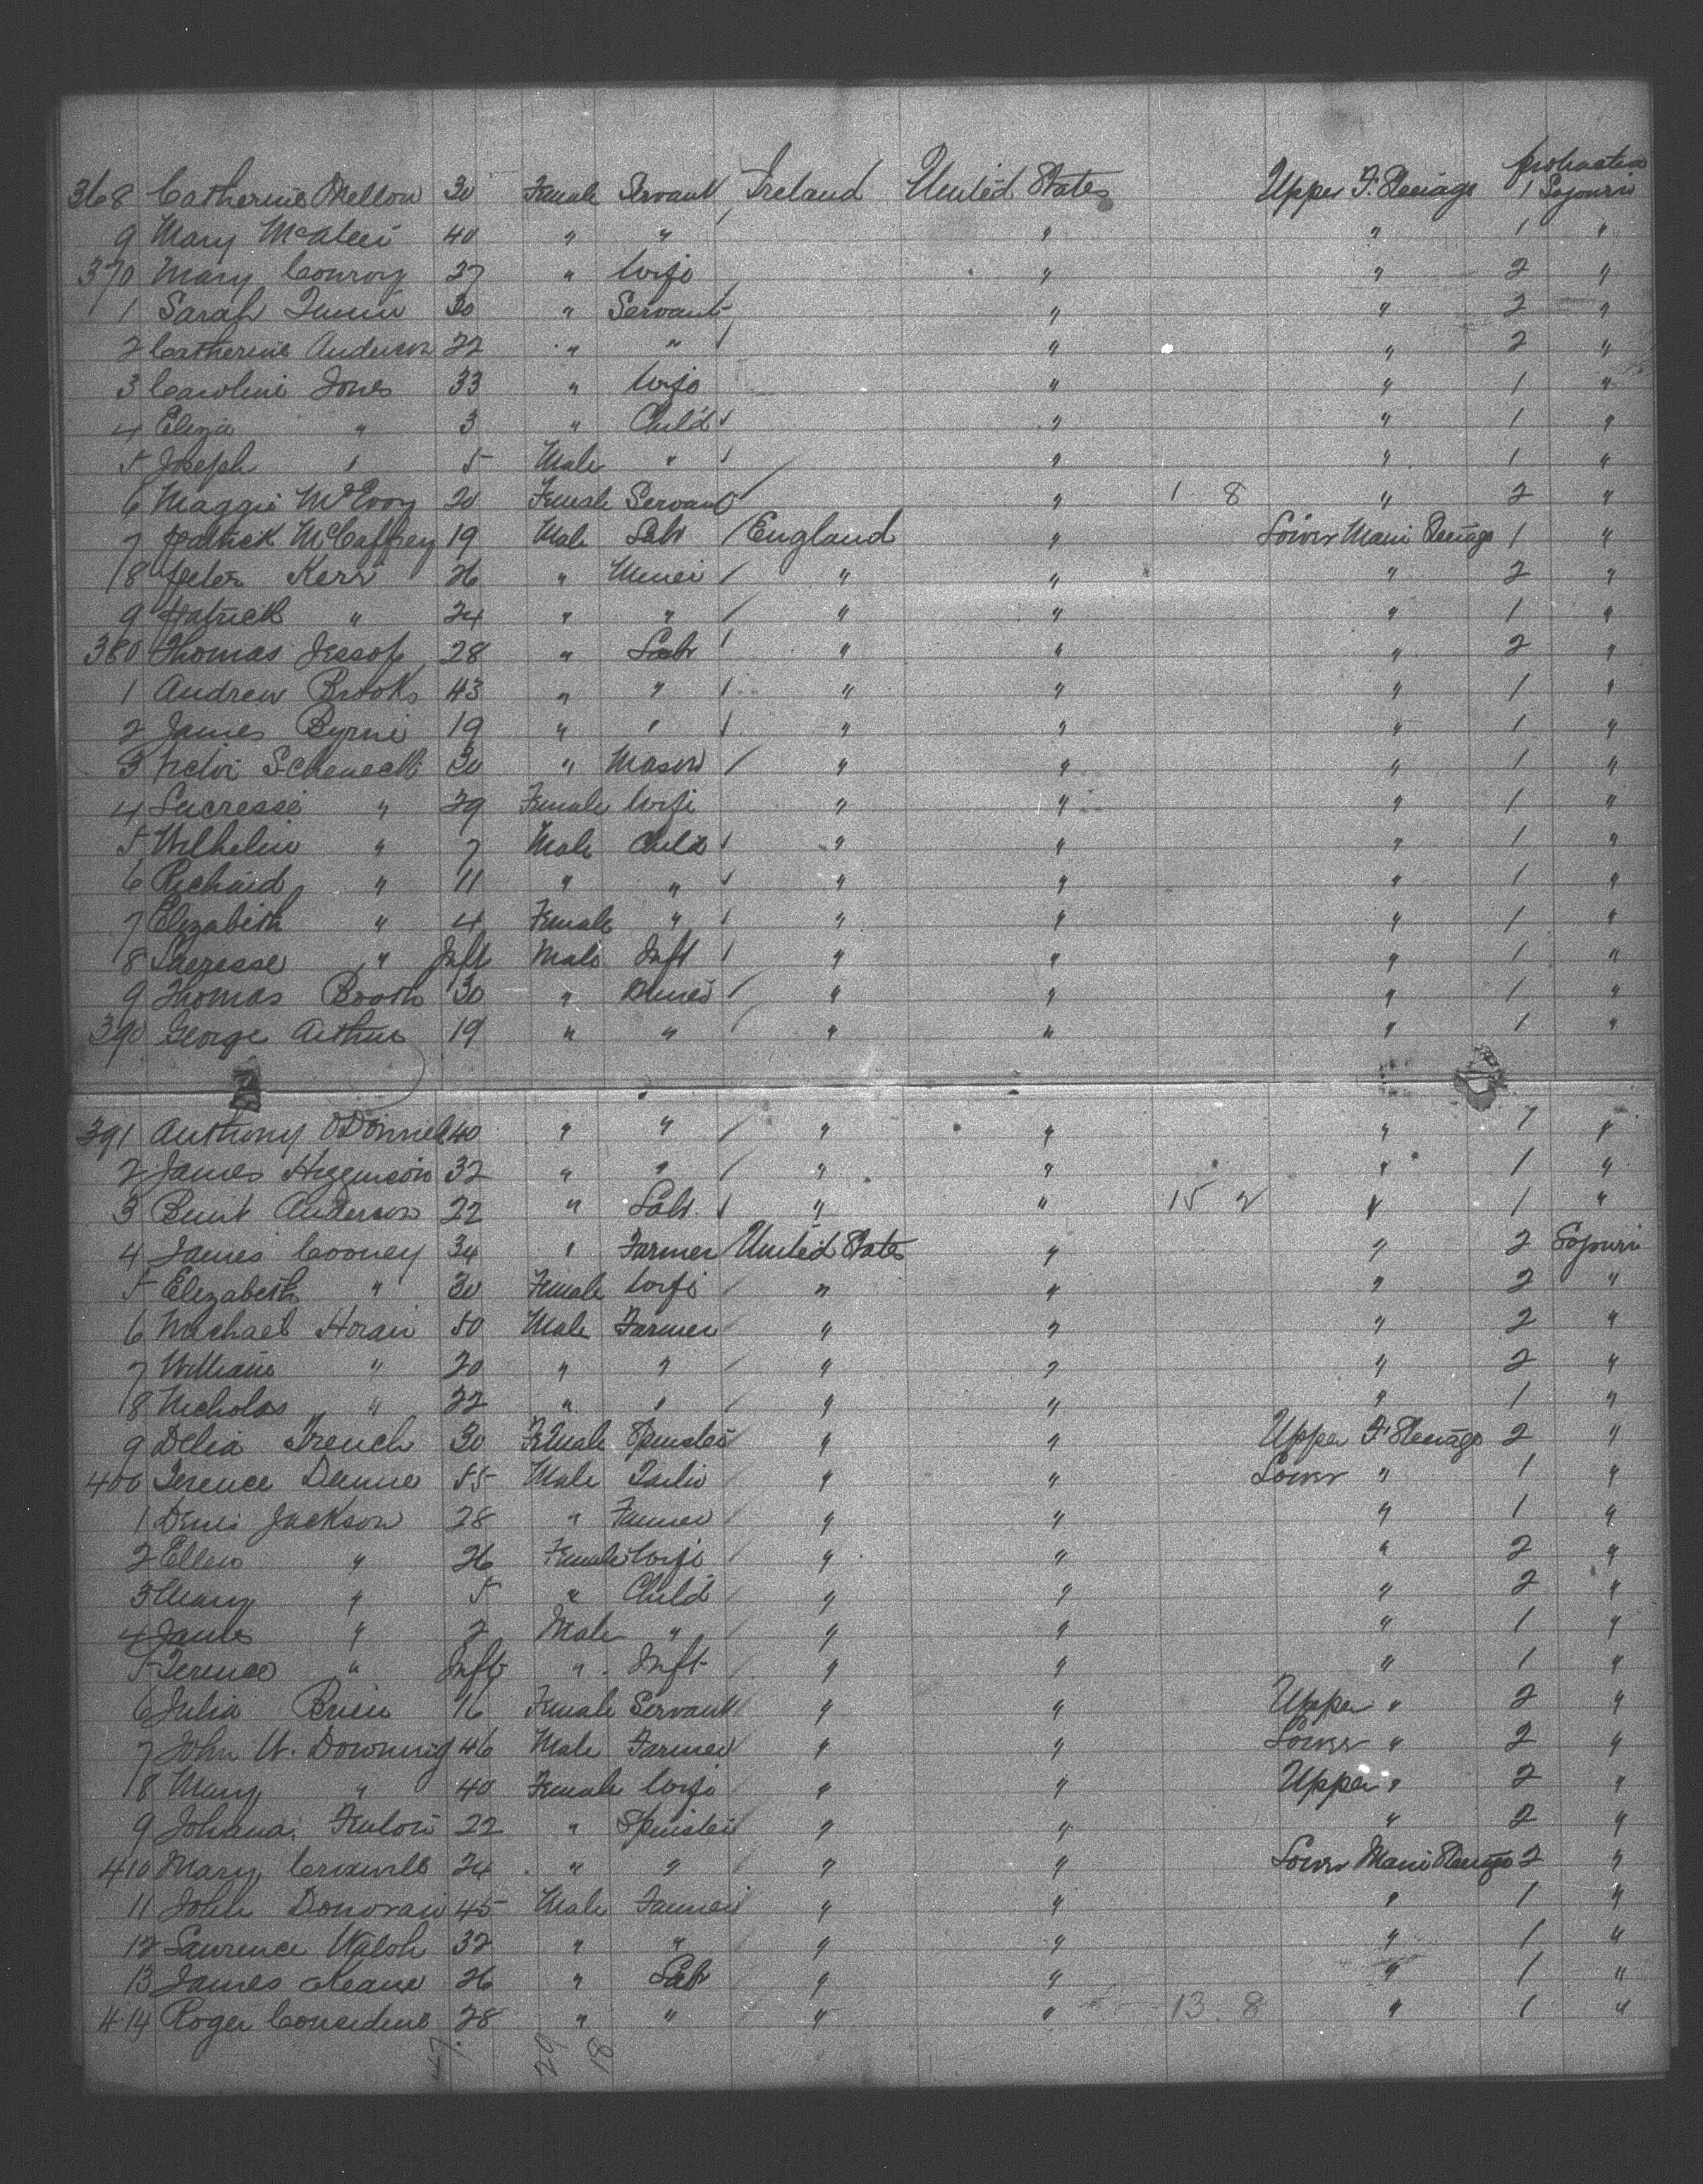 368 Catherine Mellon 30 Female Servant Ireland United States Upper F. Steerage 1 protracted Sojourn
9 Mary McAleer 40 " " " " 1 "
370 Mary Conroy 27 " Wife " " 2 "
1 Sarah Quinn 30 " Servant " " 2 "
2 Catherine Anderson 22 " " " " 2 "
3 Caroline Jones 33 " Wife " " 1 "
4 Eliza " 3 " Child " " 1 "
5 Joseph " 5 Male " " " 1 "
6 Maggie McEvoy 20 Female Servant " 1 8 " 2 "
7 Patrick McCaffrey 19 Male Labr England " Lower Main Steerage 1 "
8 Peter Kerr 26 " Miner " " " 2 "
9 Patrick " 24 " " " " " 1 "
380 Thomas Jessop 28 " Labr " " " 2 "
1 Andrew Brooks 43 " " " " " 1 "
2 James Byrne 19 " " " " " 1 "
3 30 " Mason " " " 1 "
4 " 29 Female Wife " " " 1 "
5 Wilhelm " 7 Male Child " " " 1 "
6 Richard " 11 " " " " " 1 "
7 Elizabeth " 4 Female " " " " 1 "
8 " Inft Male Inft " " " 1 "
9 Thomas Booth 30 " Miner " " " 1 "
390 George Arthur 19 " " " " " 1 "
391 Anthony O'Donnell 40 " " " " " 1 "
2 James Higginson 32 " " " " " 1 "
3 Anderson 22 " Labr " " 15 2 " 1 "
4 James Cooney 34 " Farmer United States " " 2 Sojourn
5 Elizabeth " 30 Female Wife " " " 2 "
6 Michael Horan 50 Male Farmer " " " 2 "
7 William " 20 " " " " " 2 "
8 Nicholas " 22 " " " " " 1 "
9 Delia French 30 Female Spinster " " Upper F. Steerage 2 "
400 Terence Dunne 55 Male " " Lower " 1 "
1 Denis Jackson 28 " Farmer " " " 1 "
2 Ellen " 26 Female Wife " " " 2 "
3 Mary " 5 " Child " " " 2 "
4 James " 2 Male " " " " 1 "
5 Terence " Inft " Inft " " " 1 "
6 Julia Brien 16 Female Servant " " Upper " 2 "
7 John W. Downing 46 Male Farmer " " Lower " 2 "
8 Mary " 40 Female Wife " " Upper " 2 "
9 Johana 22 " Spinster " " " 2 "
410 Mary 24 " " " " Lower Main Steerage 2 "
11 John Donovan 45 Male Farmer " " " 1 "
12 Lawrence Walsh 32 " " " " " 1 "
13 James Keane 26 " Labr " " " 1 "
414 Roger Considine 28 " " " " 13 8 " 1 "
47 29 18